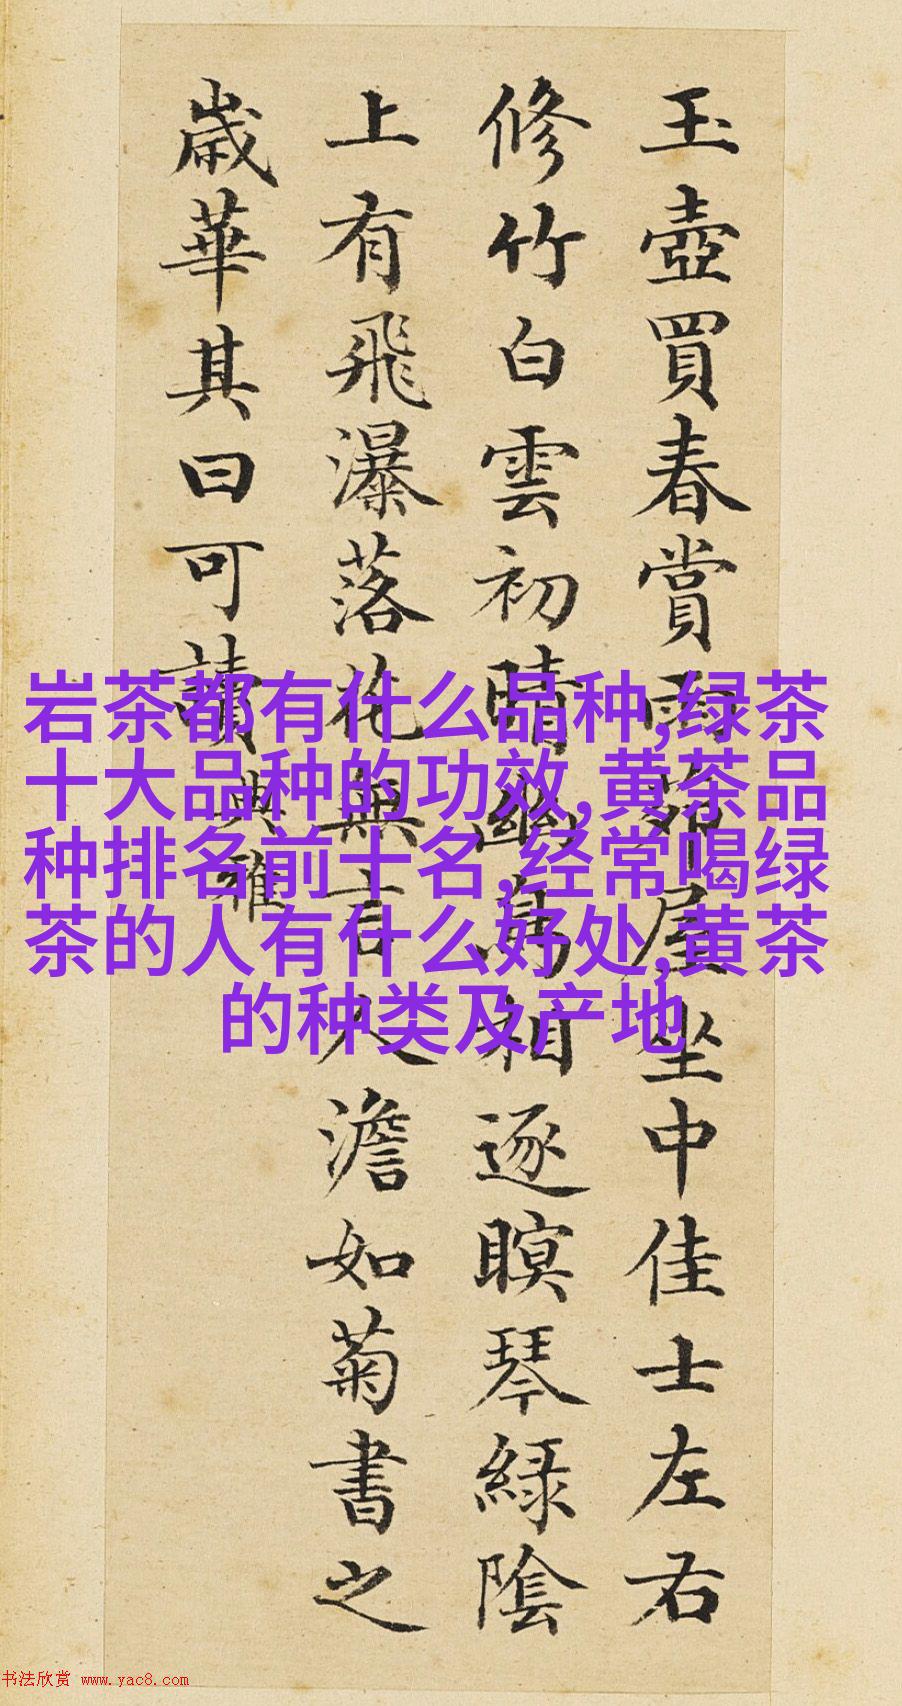 玉壺買春賞雨茆屋坐中佳士左右
修竹白雲初晴幽鳥相逐瞑琴綠陰
上有飛瀑落花無言人澹如菊書之
歲華其曰可讀典雅
岩茶都有什么品种,绿茶
十大品种的功效,黄茶品
种排名前十名,经常喝绿
茶的人有什么好处,黄茶
的种类及产地
书法欣赏 www.yac8.com